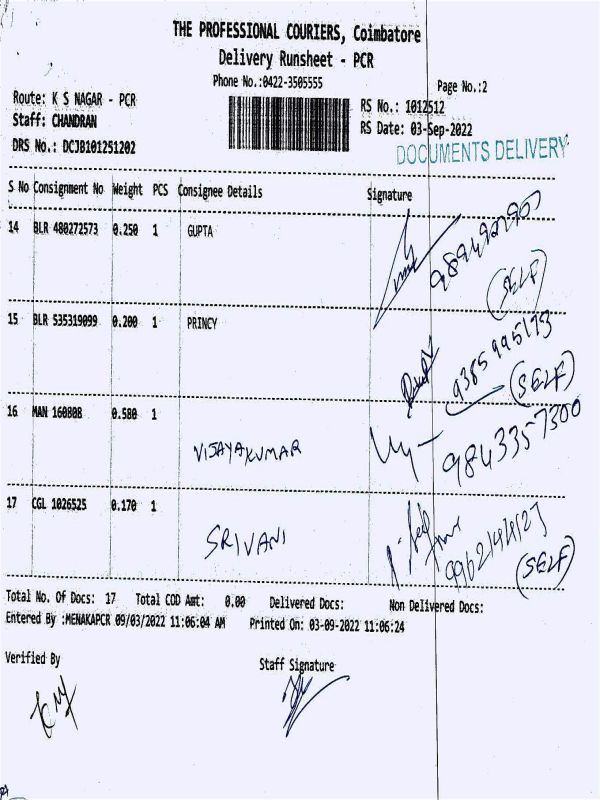 THE PROFESSIONAL COURIERS, Coimbatore
Delivery Runsheet - PCR
Phone No.:0422-3505555
Page No.:2
Route: K S NAGAR - PCR
RS No.: 1012512
Staff: CHANDRAN
RS Date: 03-Sep-2022
DRS No.: DCJB101251202
DOCUMENTS DELIVERY
S No Consignment No Weight PCS Consignee Details Signature
14 BLR 480272573 0.250 1 GUPTA
(SELF)
15 BLR 535319099 0.200 1 PRINCY
9385995193
(SELF)
16 MAN 160808 0.580 1
VIJAYAKUMAR
9843357300
17 CGL 1026525 0.170 1
SRIVANI
(SELF)
Total No. Of Docs: 17 Total COD Amt: 0.00 Delivered Docs: Non Delivered Docs:
Entered By :MENAKAPCR 09/03/2022 11:06:04 AM Printed On: 03-09-2022 11:06:24
Verified By Staff Signature